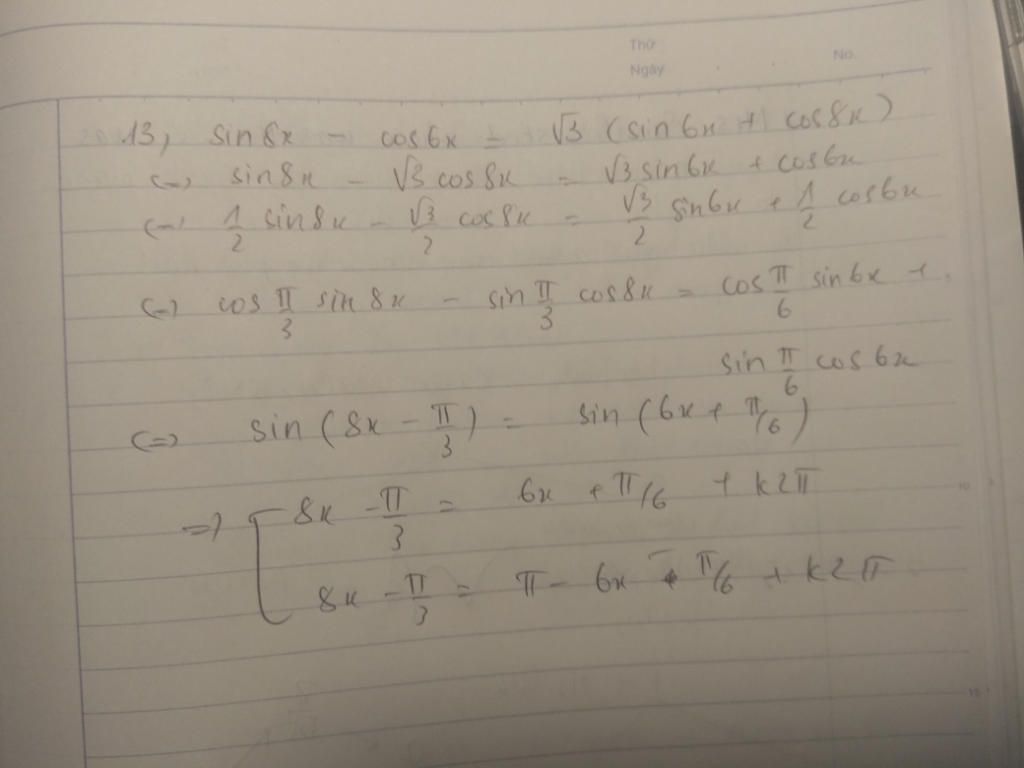 Thứ
Ngày
No.
13, sin8x - cos6x = √3 (sin6x + cos8x)
(=) sin8x - √3 cos8x = √3 sin6x + cos6x
(=) 1/2 sin8x - √3/2 cos8x = √3/2 sin6x + 1/2 cos6x
(=) cos π/3 sin 8x - sin π/3 cos8x = cos π/6 sin6x +
sin π/6 cos6x
(=) sin (8x - π/3) = sin (6x + π/6)
=) [ 8x - π/3 = 6x + π/6 + k2π
8x - π/3 = π - 6x - π/6 + k2π
10
15